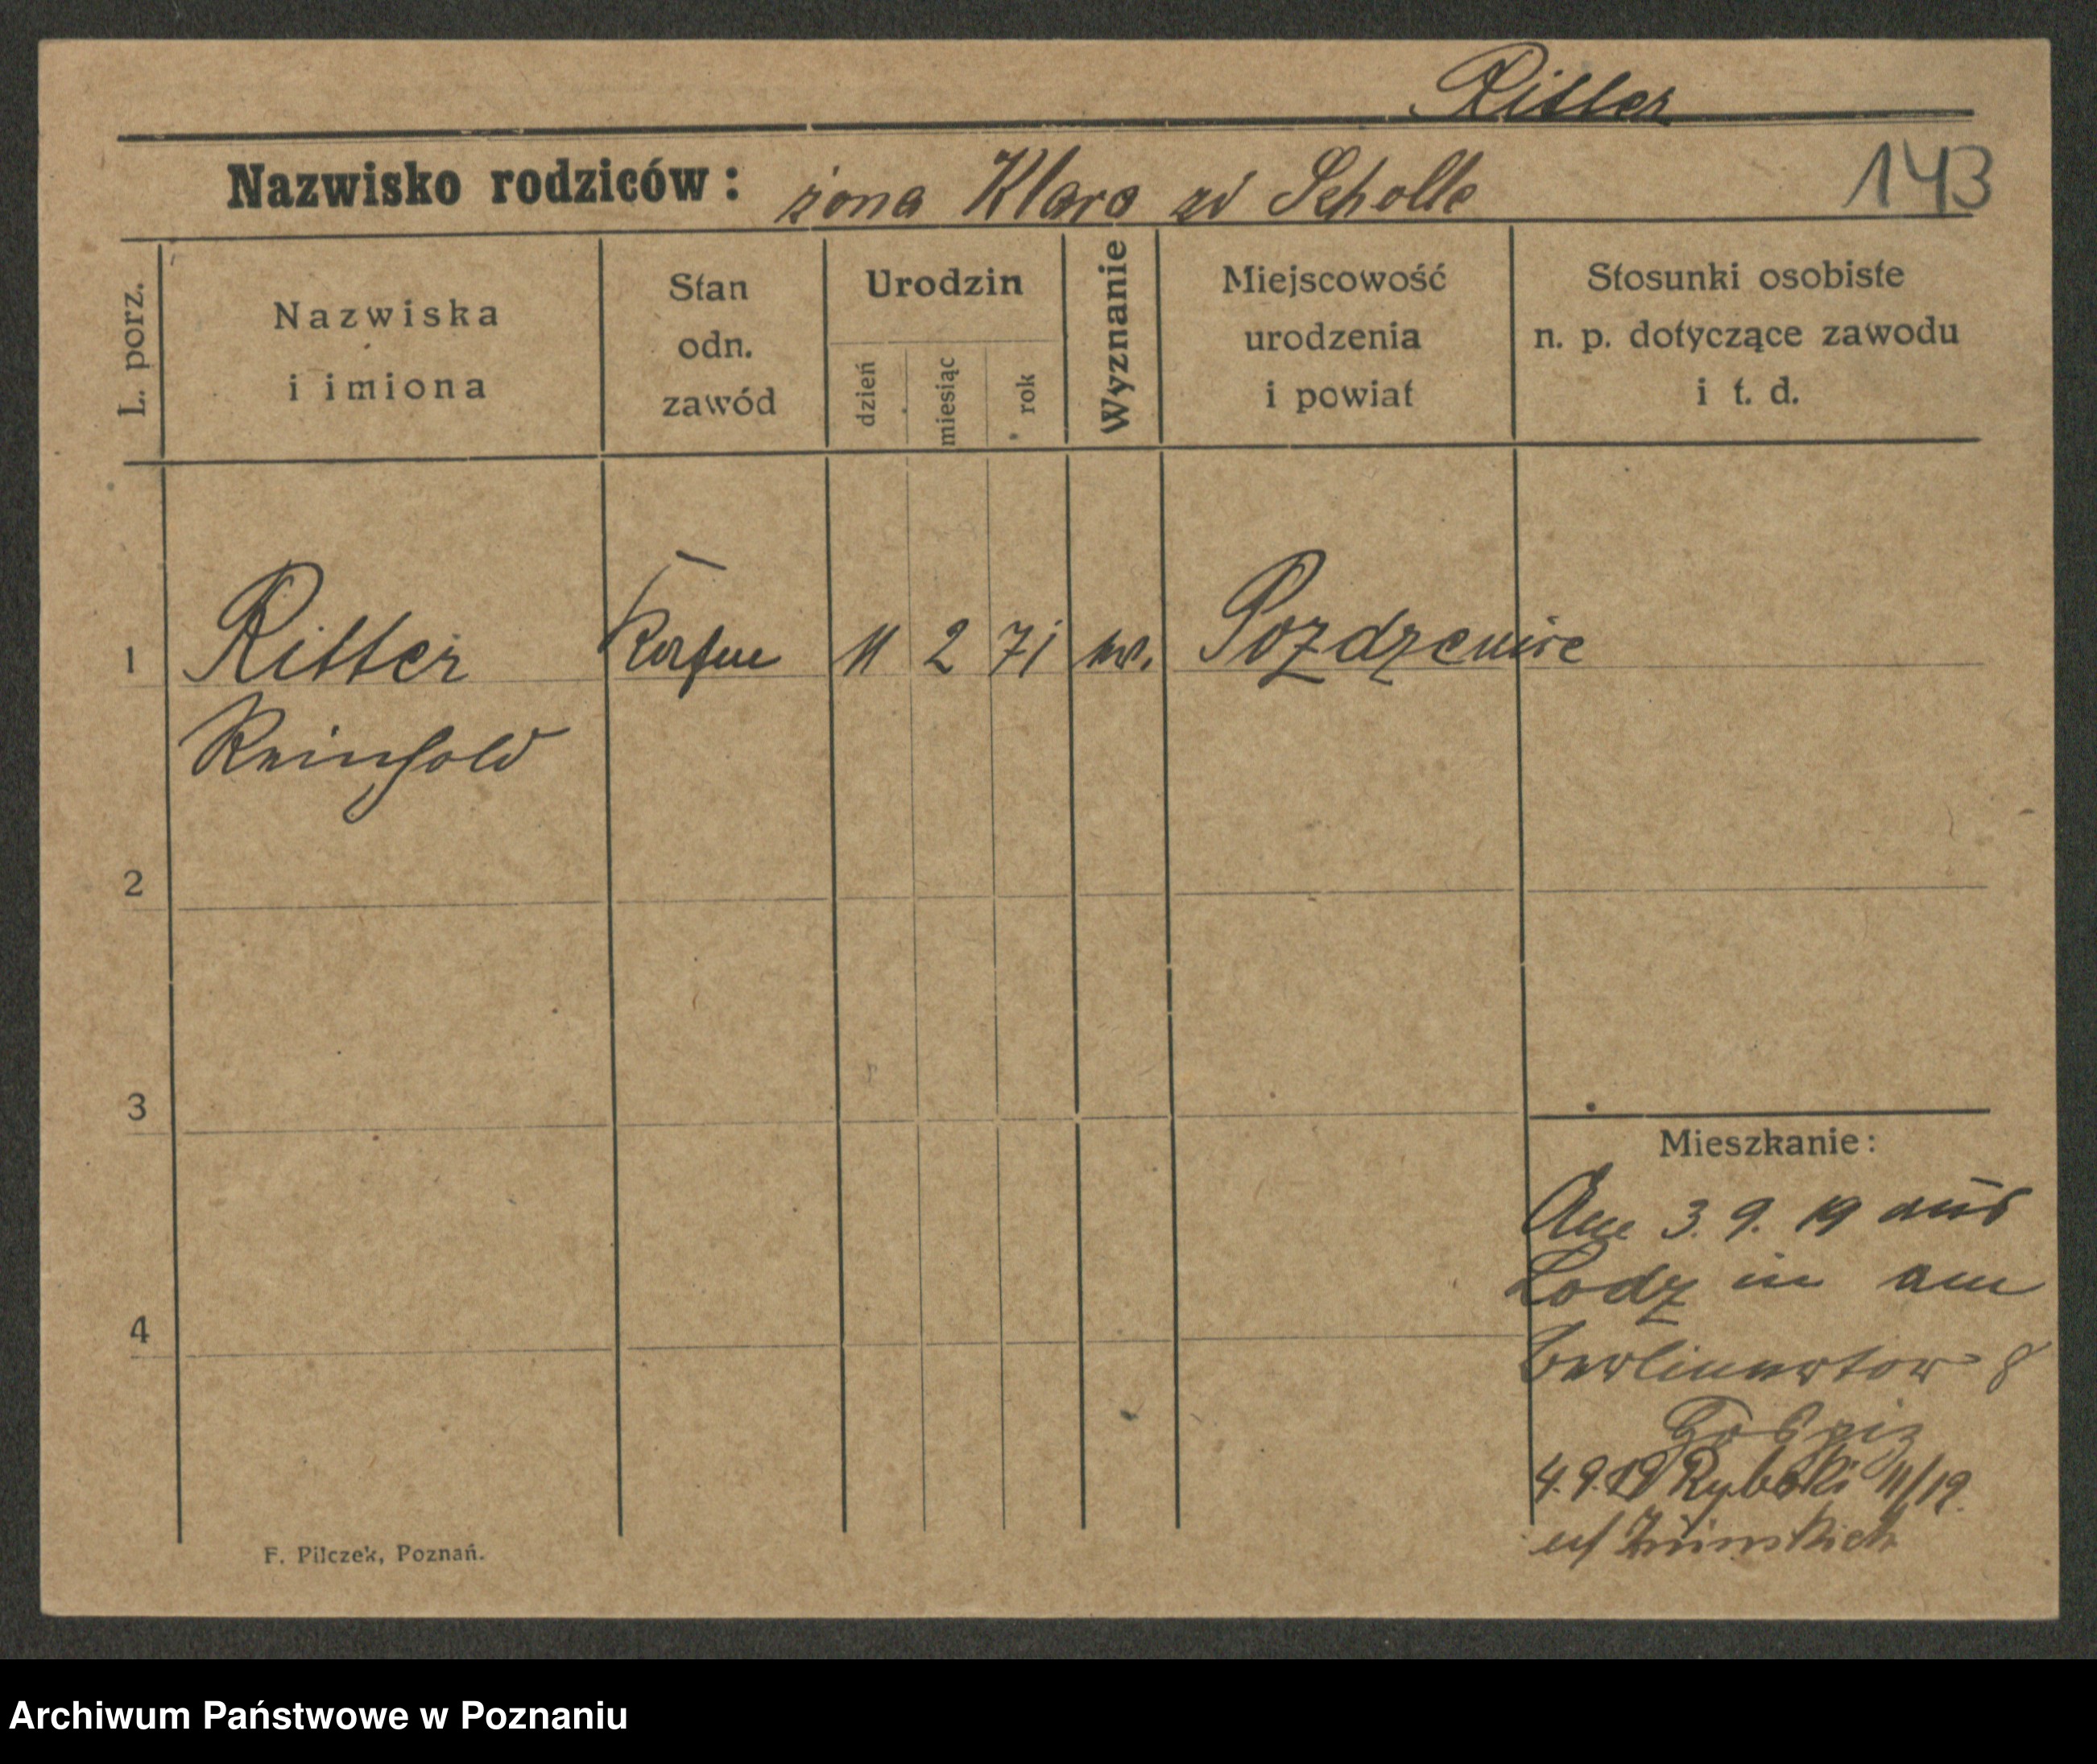 Ritter
Nazwisko rodziców: żona Klara zd Scholle
143
L. porz.
Nazwiska
i imiona
Stan
odn.
zawód
Urodzin
dzień
miesiąc
rok
Wyznanie
Miejscowość
urodzenia
i powiat
Stosunki osobiste
n. p. dotyczące zawodu
i t. d.
1 Ritter 11 2 71 Pozdzenice
Reinhold
2
3
4
Mieszkanie:
Am 3. 9. 19 aus
Lodz in am
Berlinertor 8
4. 9. 19 Rybaki 11/19.
F. Pilczek, Poznań.
Archiwum Państwowe w Poznaniu